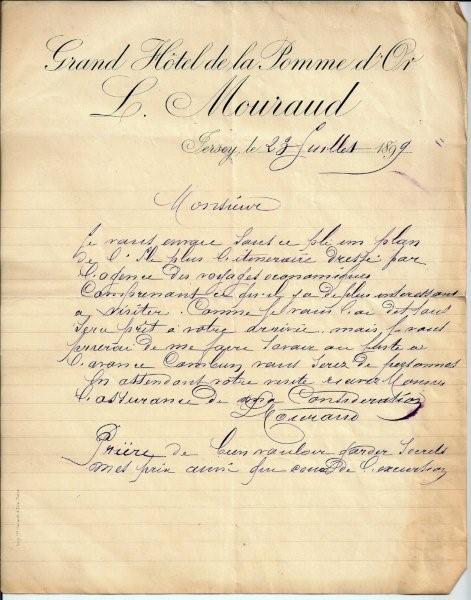 Grand Hôtel de la Pomme d'Or
L. Mouraud
Jersey, le 23 Juillet 1899
Monsieur
Je vous envoie sous ce pli un plan
de l'Ile plus l'itineraire dressé par
l'agence des voyages economiques
Comprenant ce qu'il y a de plus interessant
a visiter. Comme je vous l'ai dit tout
sera prêt a votre arrivée mais je vous
prierai de me faire savoir au juste a
l'avance Combien vous serez de personnes
En attendant votre visite recevez Monsieur
l'assurance de ma Consideration
Mouraud
Prière de bien vouloir garder secrets
mes prix ainsi que ceux de l'excursion